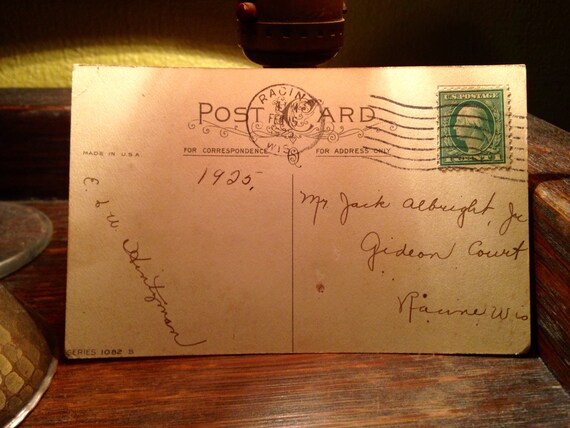 POST CARD
RACINE
FEB
WIS.
U.S. POSTAGE
MADE IN U.S.A.
FOR CORRESPONDENCE
FOR ADDRESS ONLY
1925,
E. & W. Hintzman
Mr. Jack Albright, Jr
Gideon Court
Racine Wis
SERIES 1082 B